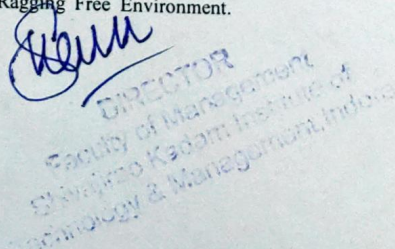 Ragging Free Environment.
DIRECTOR
Faculty of Management
Shivajirao Kadam Institute of
Technology & Management, Indore